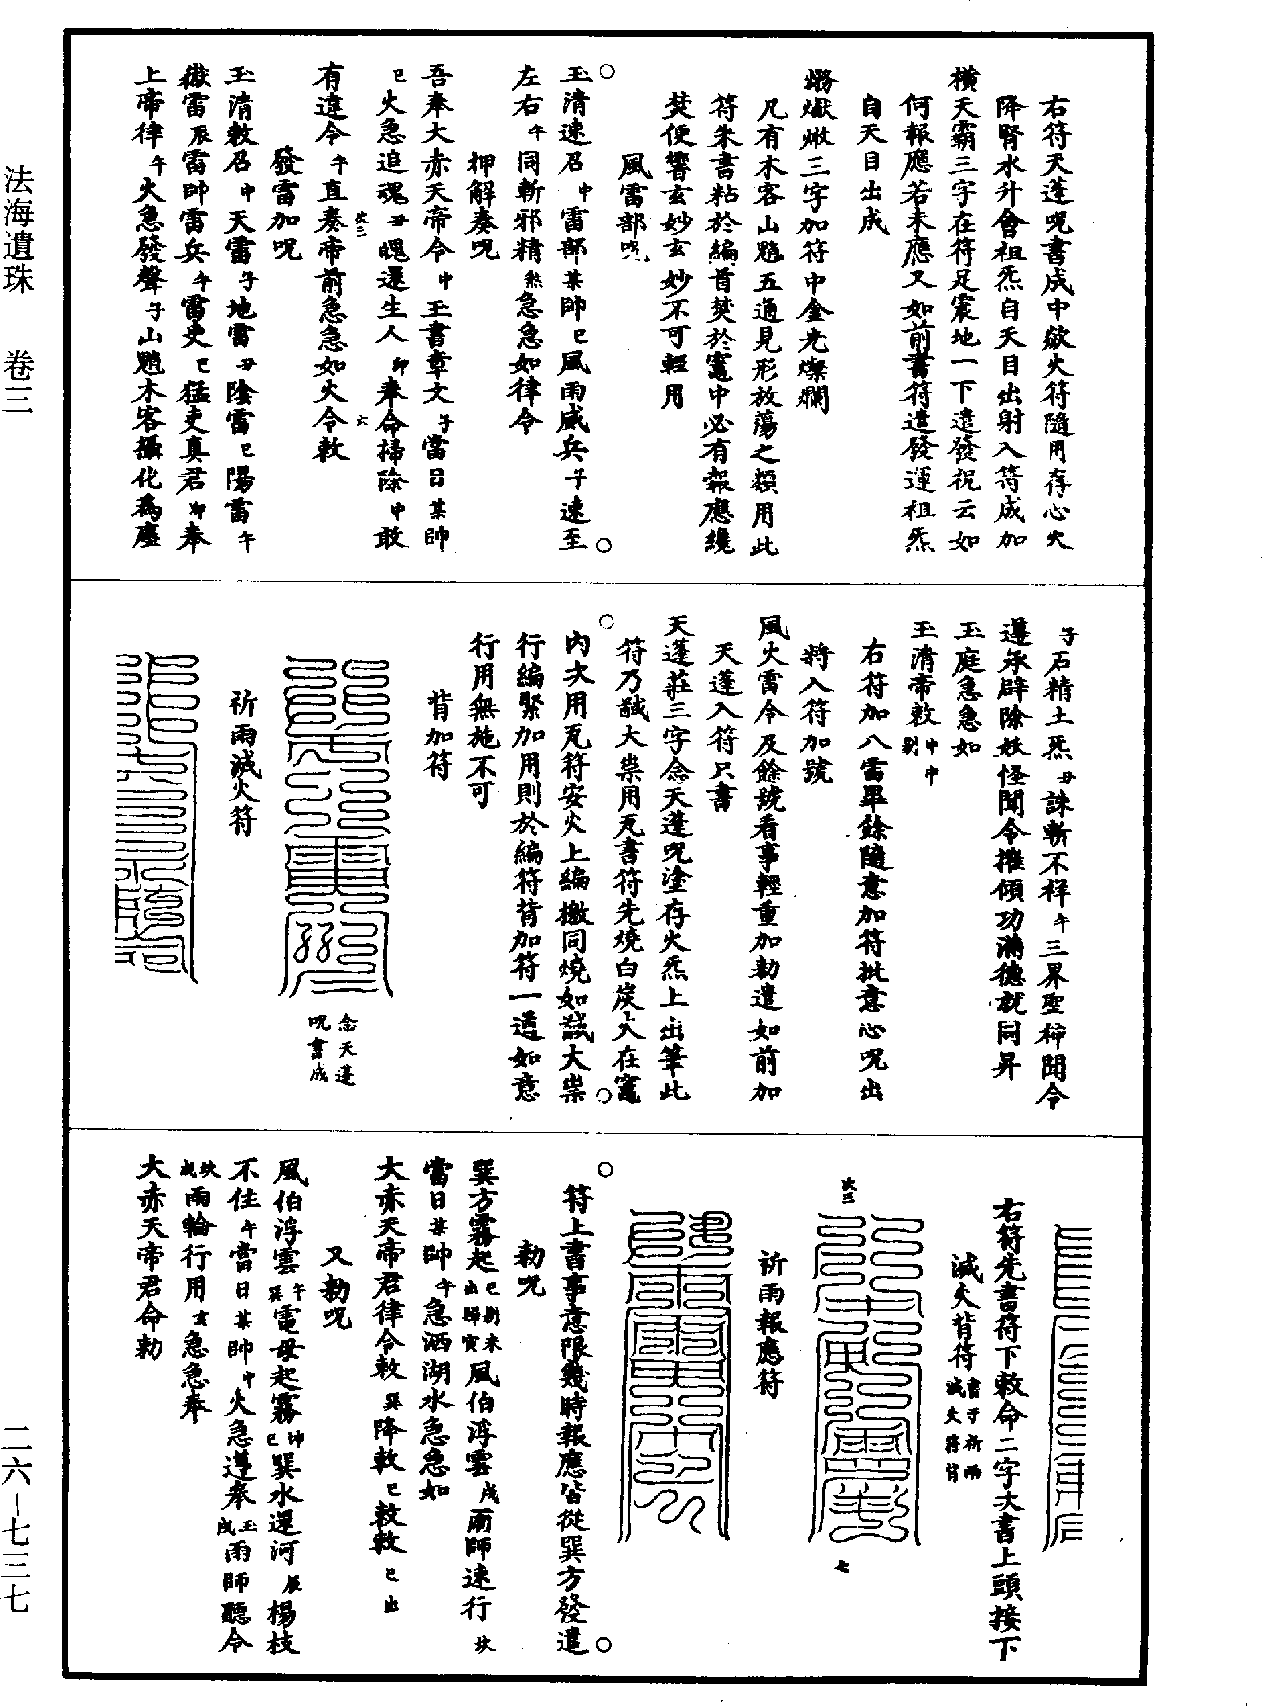 右符天蓬呪書成中欲火符隨用存心火
降腎水升會祖炁自天目出射入符成加
橫天霸三字在符足震地一下遣發祝云如
何報應若未應又如前書符遣發運祖炁
自天目出成
三字加符中金光燦爛
凡有木客山魈五通見形放蕩之類用此
符朱書粘於編首焚於竈中必有報應纔
焚便響玄妙玄妙不可輕用
風雷部呪
玉清速召申雷部某帥巳風雨威兵子速至
左右午同斬邪精煞急急如律令
押解奏呪
吾奉大赤天帝令申王書章文子當日某帥
巳火急追魂丑魄還生人卯奉命掃除申敢
有違令午直奏帝前急急如火令敕
發雷加呪
玉清敕召申天雷子地雷丑陰雷巳陽雷午
嶽雷辰雷帥雷兵午雷吏巳猛吏真君卯奉
上帝律午火急發聲子山魈木客攝化為塵
子石精土炁丑誅斬不祥午三界聖神聞令
遵承辟除妖怪聞令摧傾功滿德就同昇
玉庭急急如
玉清帝敕申劄申
右符加八雷畢餘隨意加符批意心呪出
將入符加號
風火雷令及餘號看事輕重加勅遣如前加
天蓬入符只書
天蓬莊三字念天蓬呪塗存火炁上出筆此
符乃馘大祟用瓦書符先燒白炭火在竈
內次用瓦符安火上編檄同燒如馘大祟
行編緊加用則於編符背加符一道如意
行用無施不可
背加符
念天蓬
呪書成
祈雨滅火符
右符先書符下敕命二字大書上頭接下
滅火背符書于祈雨
滅火符背
次三
七
祈雨報應符
符上書事意限幾時報應皆從巽方發遣
勅呪
巽方霧起巳劄未出歸寅風伯浮雲戌雨師速行坎
當日某帥午急洒湖水急急如
大赤天帝君律令敕巽降敕巳敕敕巳出
又勅呪
風伯浮雲午巽電母起霧坤巳巽水還河辰楊枝
不住午當日某帥申火急遵奉玉戌雨師聽令
坎戌雨輪行用亥急急奉
大赤天帝君命勅
法海遺珠　卷三
二六—七三七